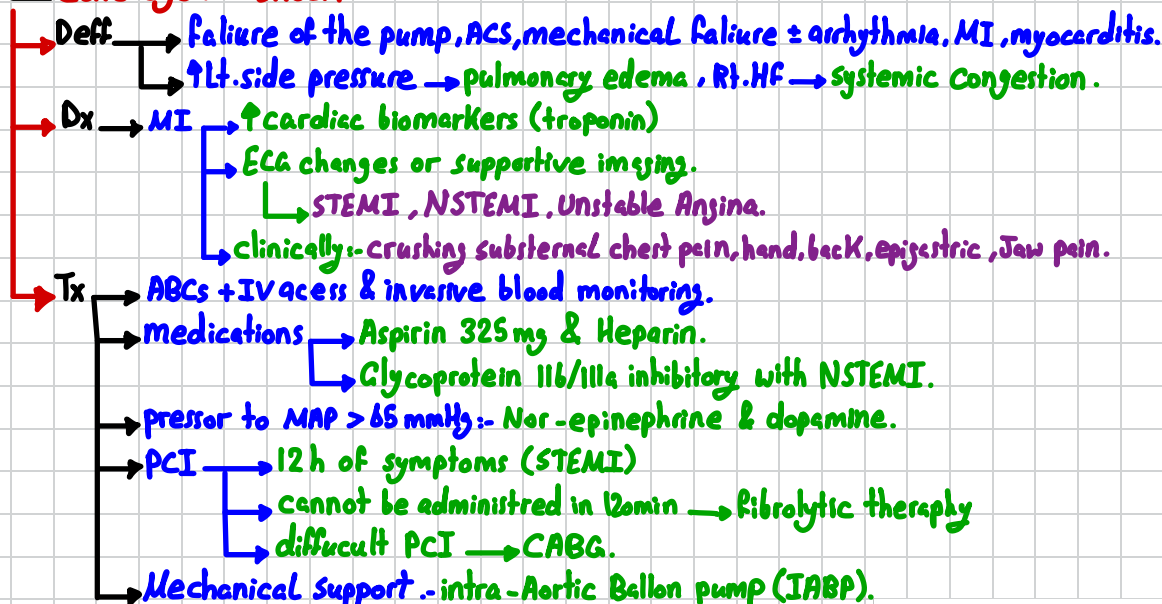 Deff faliure of the pump, ACS, mechanical faliure ± arrhythmia, MI, myocarditis.
↑Lt. side pressure → pulmonary edema, Rt. HF → systemic Congestion.
Dx → MI ↑cardiac biomarkers (troponin)
ECG changes or supportive imaging.
STEMI, NSTEMI, Unstable Angina.
clinically:- crushing substernal chest pain, hand, back, epigastric, Jaw pain.
Tx ABCs + IV acess & invasive blood monitoring.
medications Aspirin 325 mg & Heparin.
Glycoprotein IIb/IIIa inhibitory with NSTEMI.
pressor to MAP > 65 mmHg:- Nor-epinephrine & dopamine.
PCI 12h of symptoms (STEMI)
cannot be administred in 120min → fibrolytic theraphy
diffucult PCI → CABG.
Mechanical support.- intra-Aortic Ballon pump (IABP).